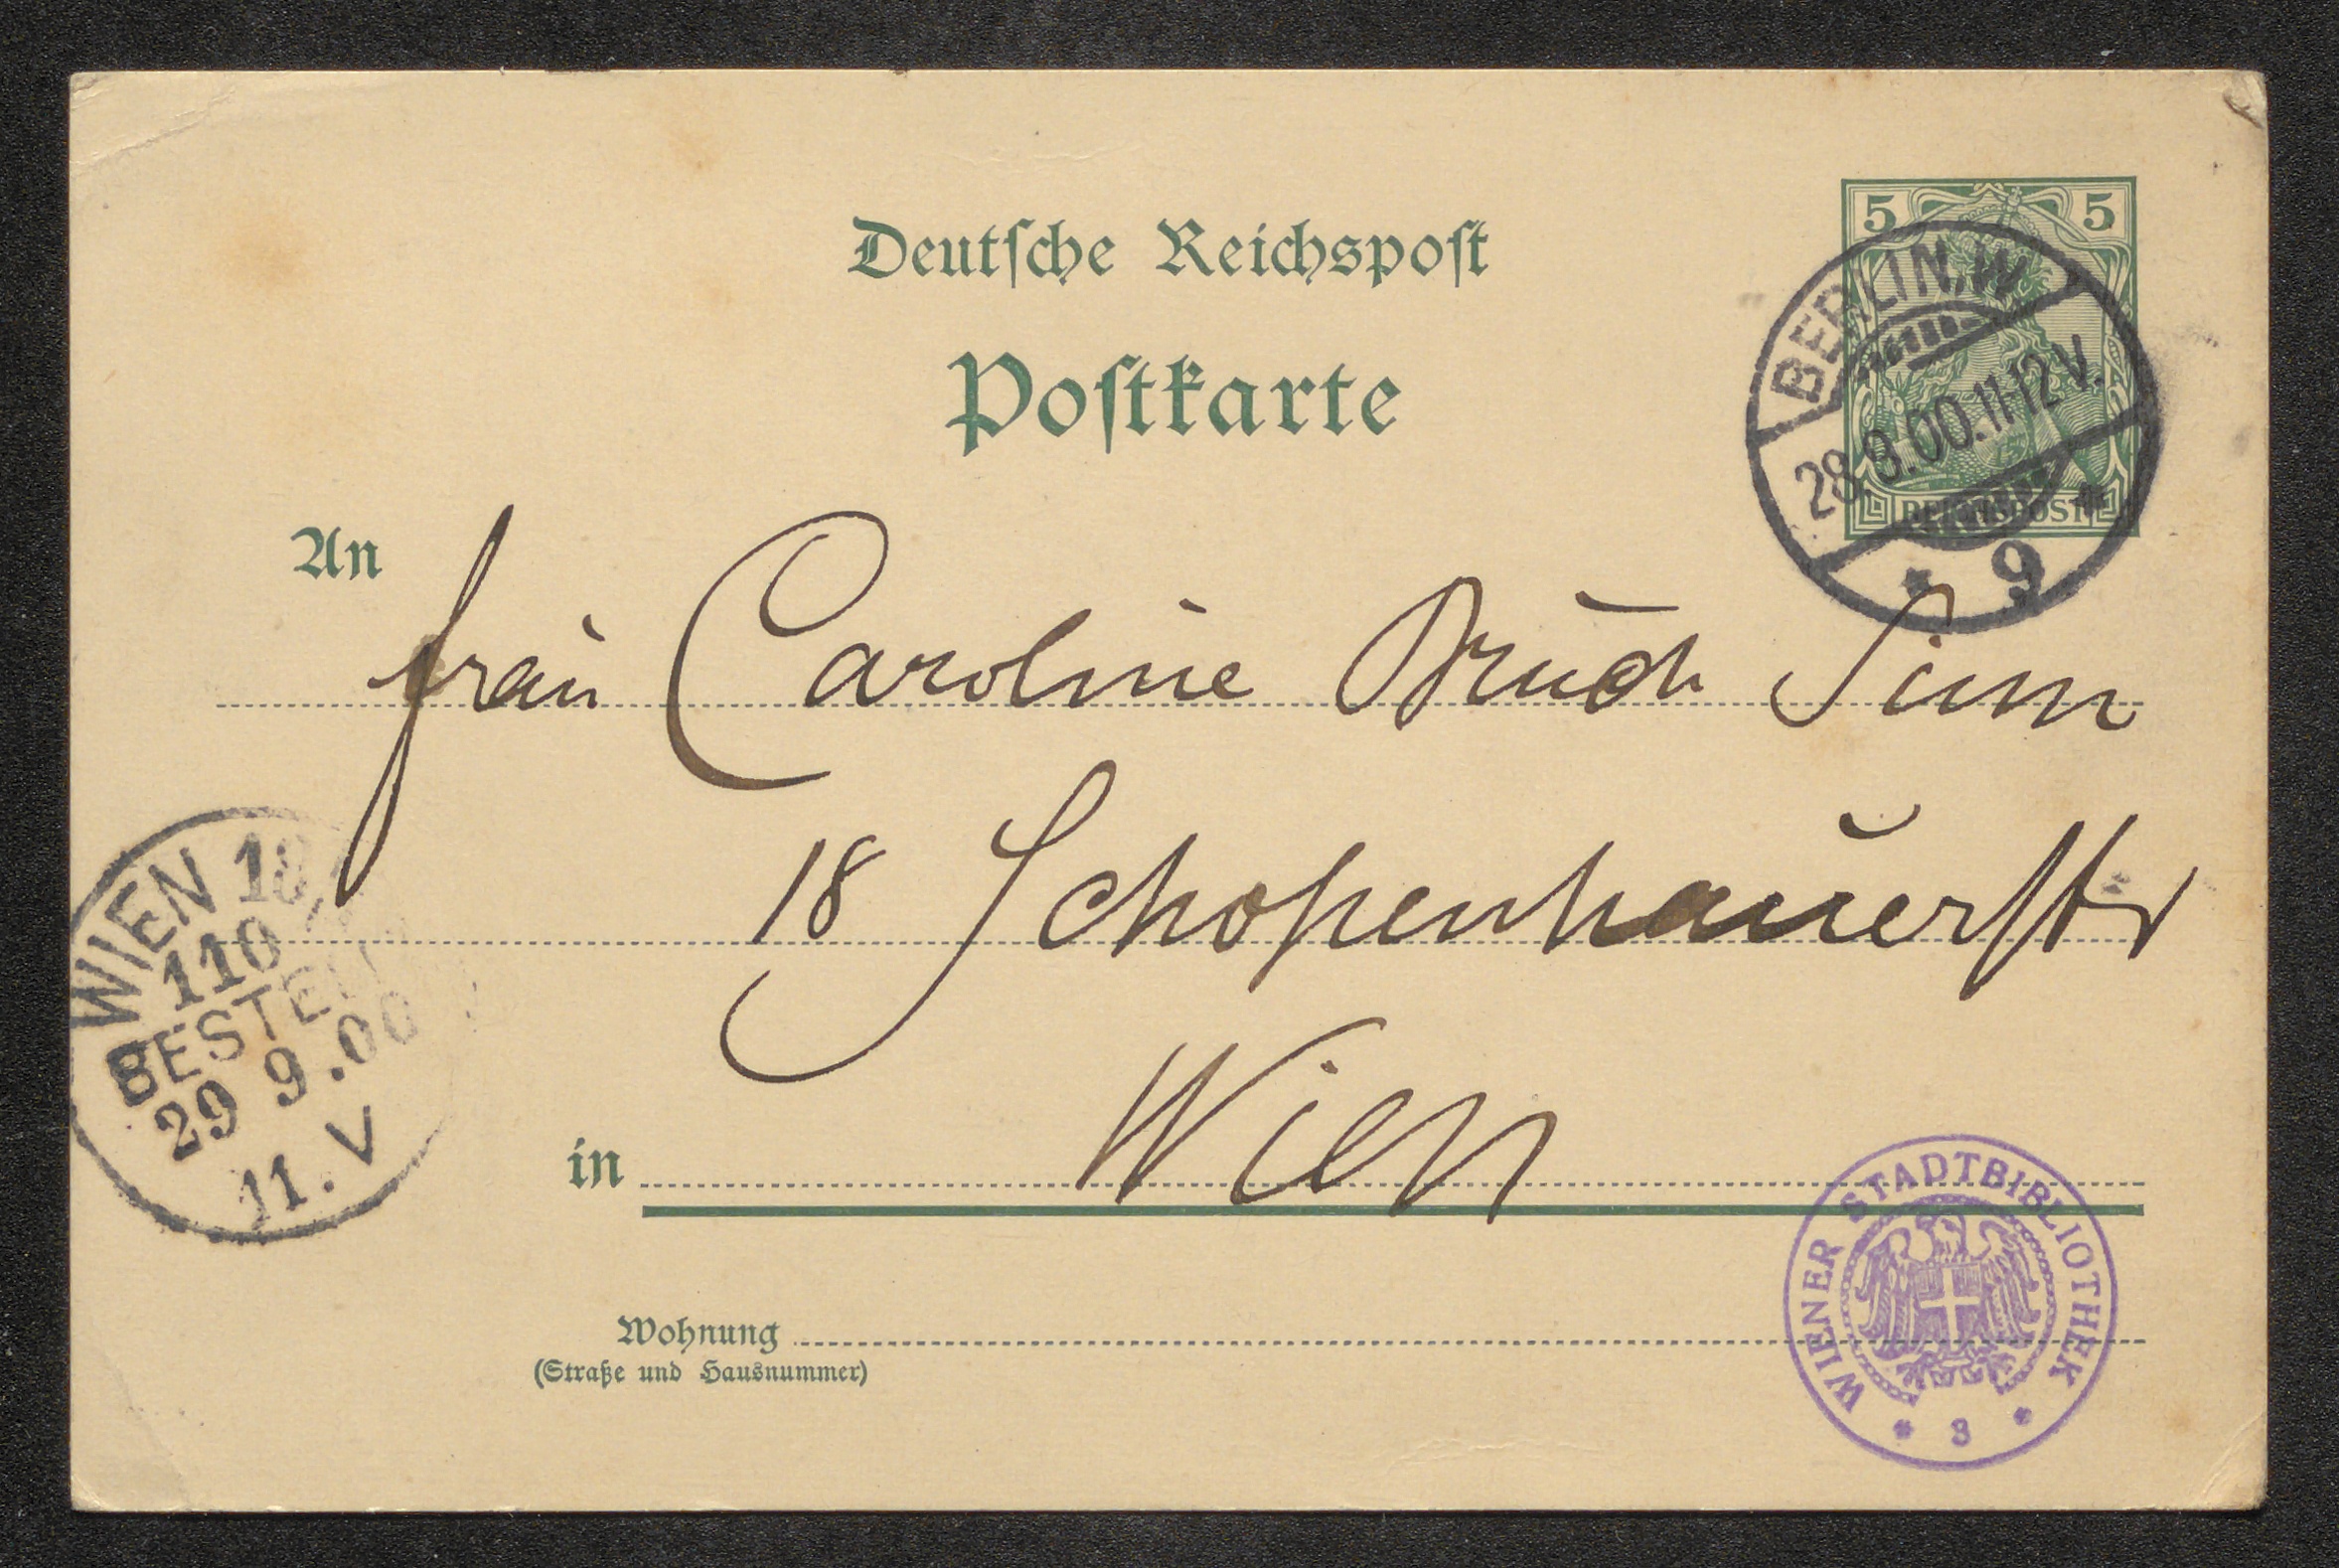 Deutsche Reichspost
Postkarte
5 5
REICHSPOST
BERLIN, W.
28.9.00.11-12V.
* 9 *
An
Frau Caroline Bruch Sinn
18 Schopenhauerstr
in Wien
WIEN 18
110
BESTELLT
29 9.00
11. V
Wohnung
(Straße und Hausnummer)
WIENER STADTBIBLIOTHEK
* 3 *